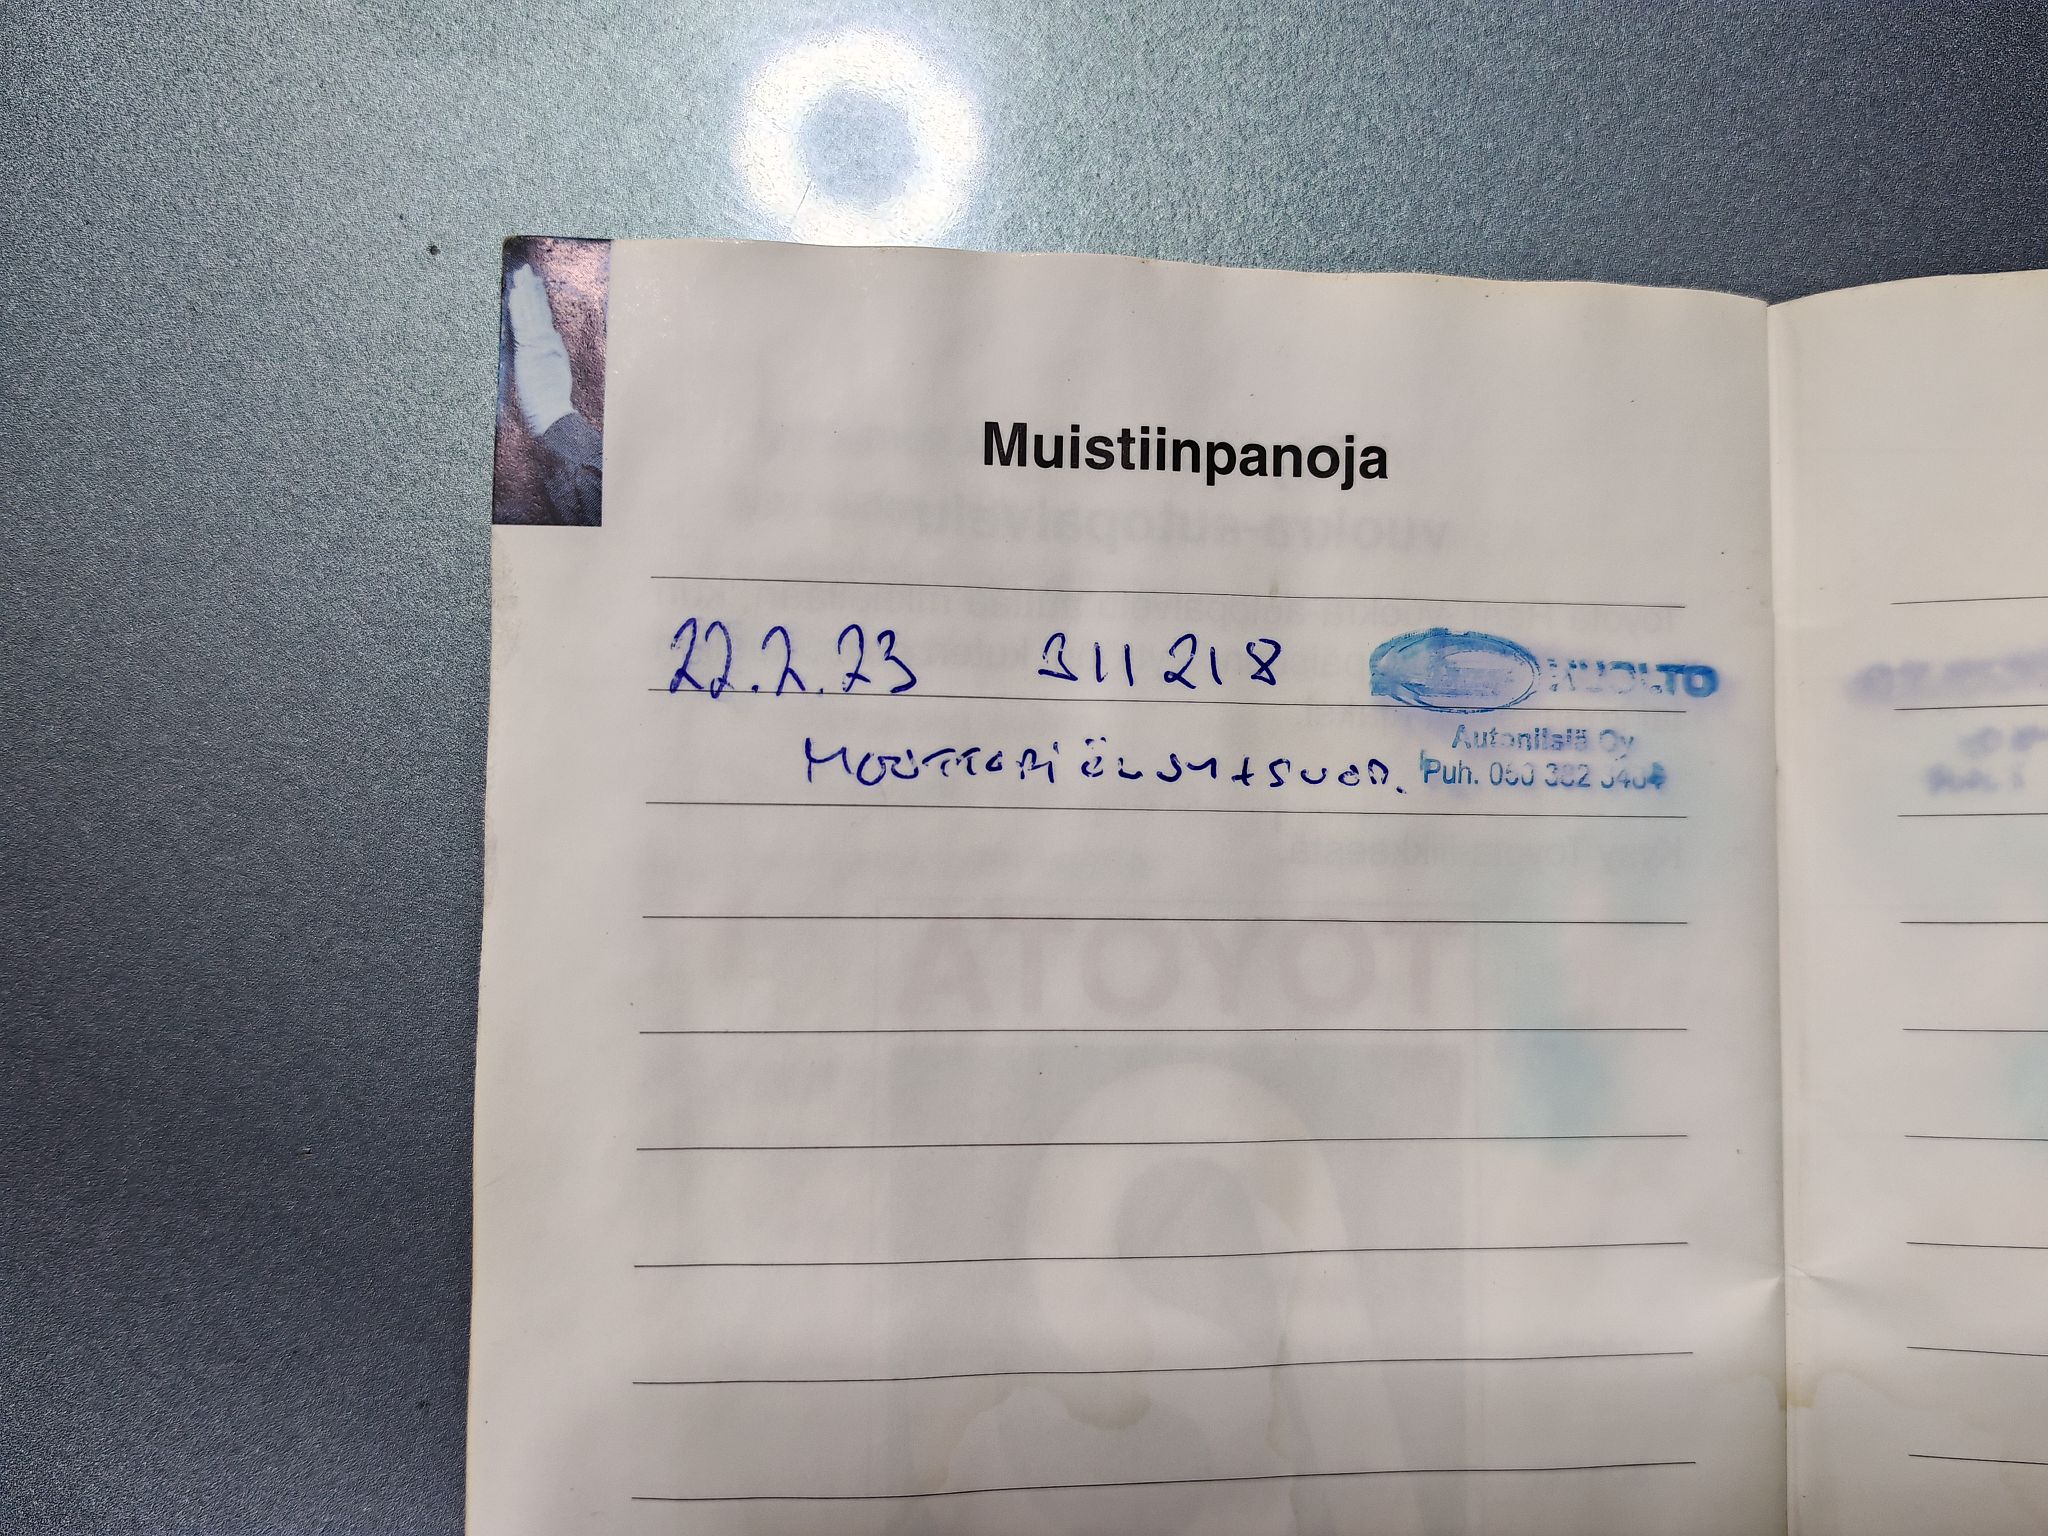 Muistiinpanoja
22.2.23 311218 HUOLTO
MOOTTORIÖLJY + SUOD. Autoniisiä Oy
Puh. 050 382 3404